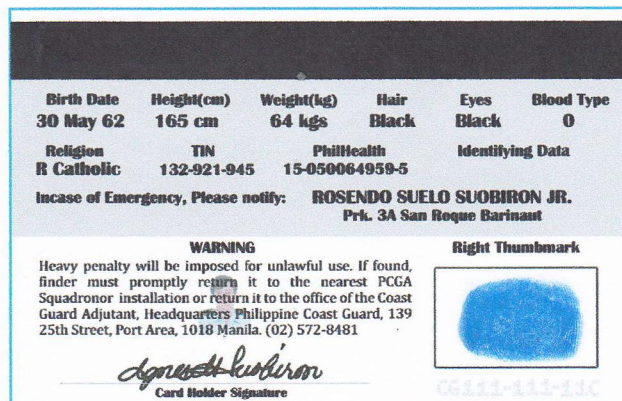 Birth Date Height(cm) Weight(kg) Hair Eyes Blood Type
30 May 62 165 cm 64 kgs Black Black O
Religion TIN PhilHealth Identifying Data
R Catholic 132-921-945 15-050064959-5
Incase of Emergency, Please notify: ROSENDO SUELO SUOBIRON JR.
Prk. 3A San Roque Barinaut
WARNING
Heavy penalty will be imposed for unlawful use. If found,
finder must promptly return it to the nearest PCGA
Squadronor installation or return it to the office of the Coast
Guard Adjutant, Headquarters Philippine Coast Guard, 139
25th Street, Port Area, 1018 Manila. (02) 572-8481
Card Holder Signature
Right Thumbmark
CG111-111-11C